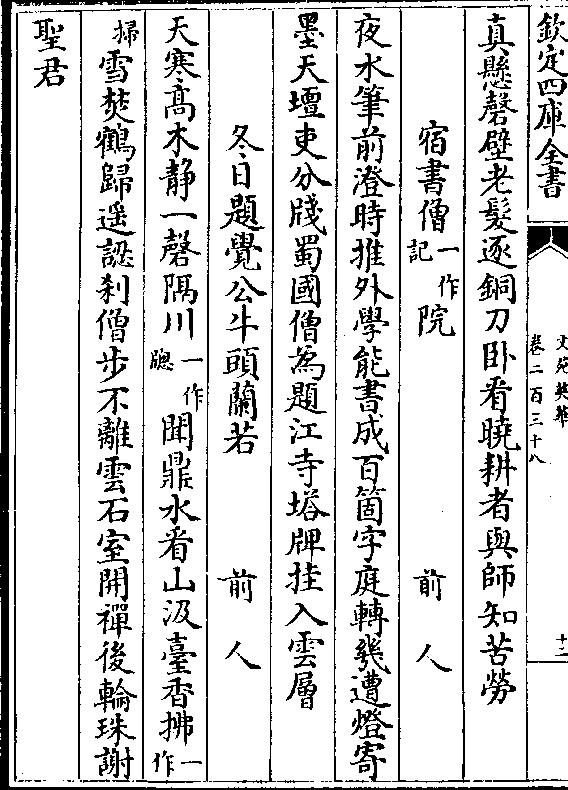 欽定四庫全書
文苑英華
卷二百三十八
十二
真懸磬壁老髮逐銅刀卧看曉耕者與師知苦勞
宿書僧一作記院 前人
夜水筆前澄時推外學能書成百箇字庭轉幾遭燈寄
墨天壇吏分牋蜀國僧為題江寺塔牌挂入雲層
冬日題覺公牛頭蘭若 前人
天寒高木靜一磬隅川一作聽聞鼎水看山汲臺香拂一作
掃雪焚鶴歸遥認刹僧步不離雲石室開禪後輪珠謝
聖君